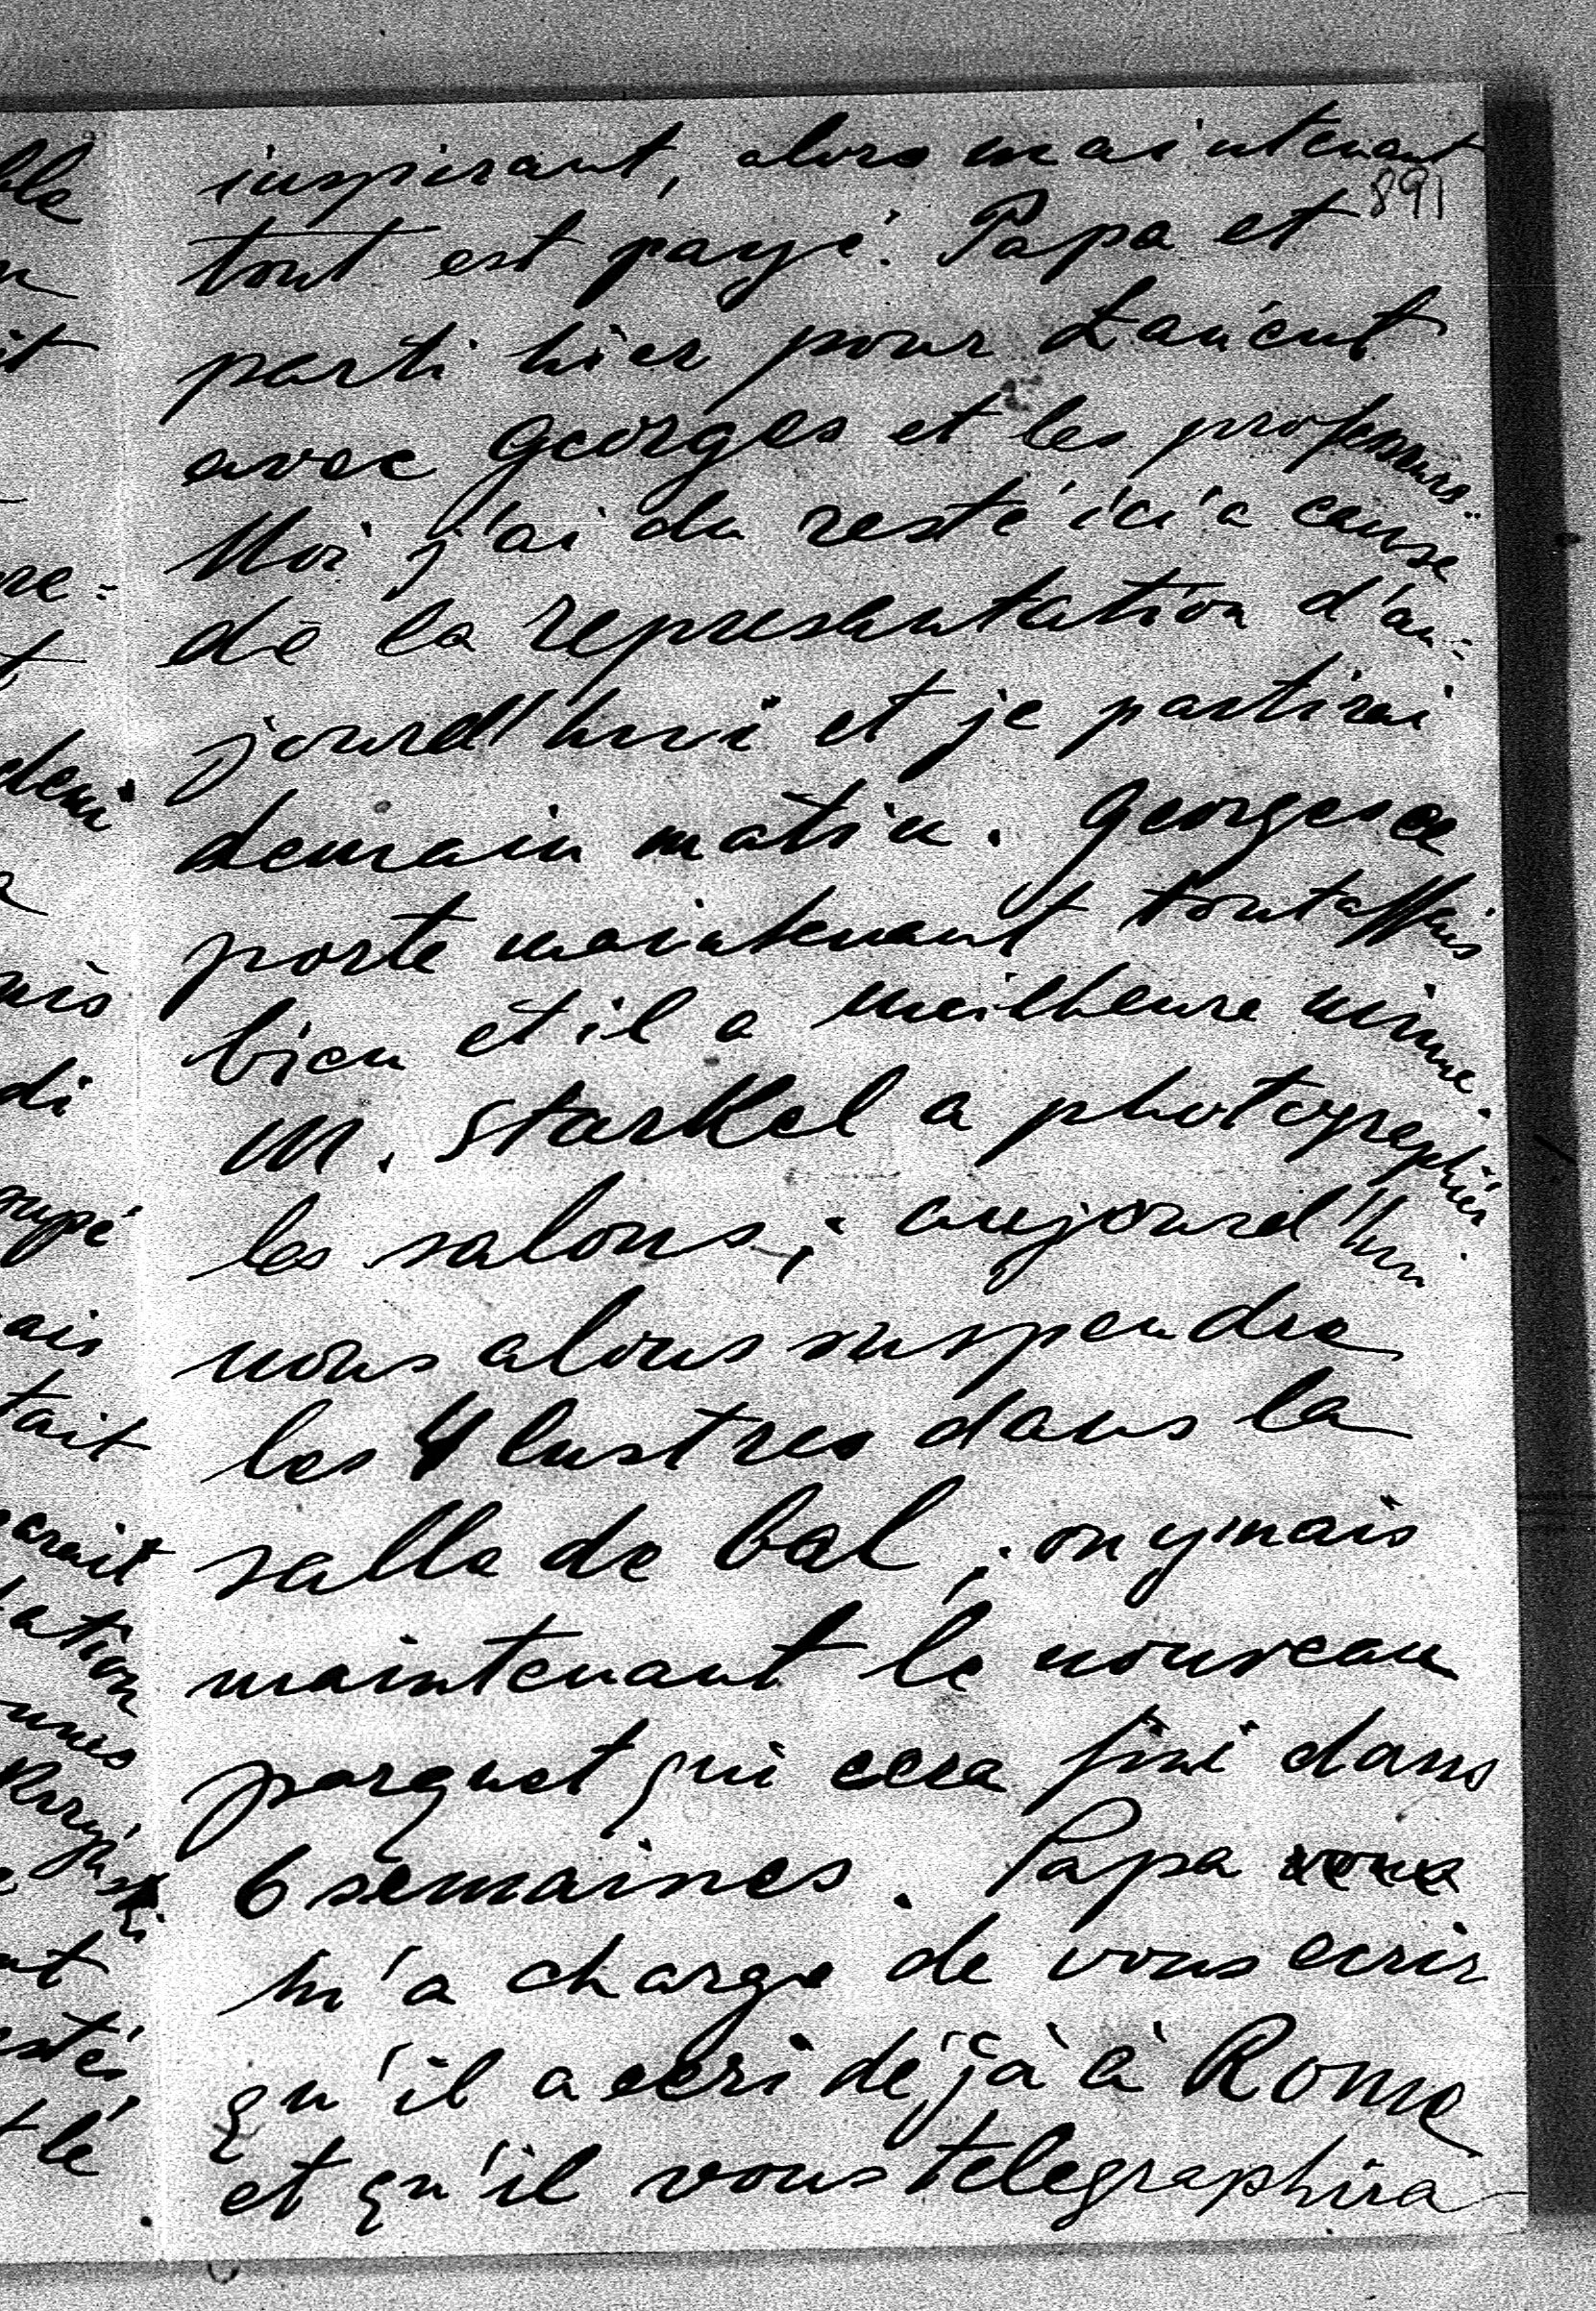 inspirant, alors maintenant
891
tout est payé. Papa et
parti hier pour Łańcut
avec Georges et les professeurs.
Moi j'ai du resté ici a cause
de la representation d'au=
jourd'hui et je partirai
demain matin. Georges ce
porte maintenant toutaffais
bien et il a meilheure mine.
M. Starkel a photographiér
les salons; aujourd'hui
nous alons suspendre
les 4 lustres dans la
salle de bal; on y mais
maintenant le nouveau
parquet qui cera fini dans
6 semaines. Papa
m'a charge de vous ecrir
qu'il a ecri déjà à Rome
et qu'il vous telegraphira